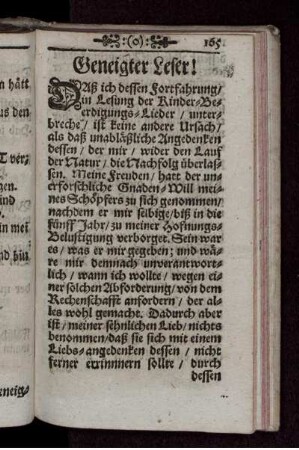 :(o): 165
Geneigter Leser!
DAß ich dessen Fortfahrung/
in Lesung der Kinder-Be-
erdigungs-Lieder/ unter-
breche/ ist keine andere Ursach/
als daß unabläßliche Angedenken
dessen/ der mir/ wider den Lauf
der Natur/ die Nachfolg überlas-
sen. Meine Freuden/ hatt der un-
erforschliche Gnaden-Will mei-
nes Schöpfers zu sich genommen/
nachdem er mir selbige/ biß in die
fünff Jahr/ zu meiner Hofnungs-
Belustigung verborget. Sein war
es/ was er mir gegeben; und wä-
re mir demnach unverantwort-
lich/ wann ich wollte/ wegen ei-
ner solchen Abforderung/ von dem
Rechenschafft anfordern/ der al-
les wohl gemacht. Dadurch aber
ist/ meiner sehnlichen Lieb/ nichts
benommen/ daß sie sich mit einem
Liebs-angedenken dessen/ nicht
ferner erinnern sollte/ durch
dessen
n hätt
us den
T ver-
gen.
ind
in mei
nd hin
eneig-